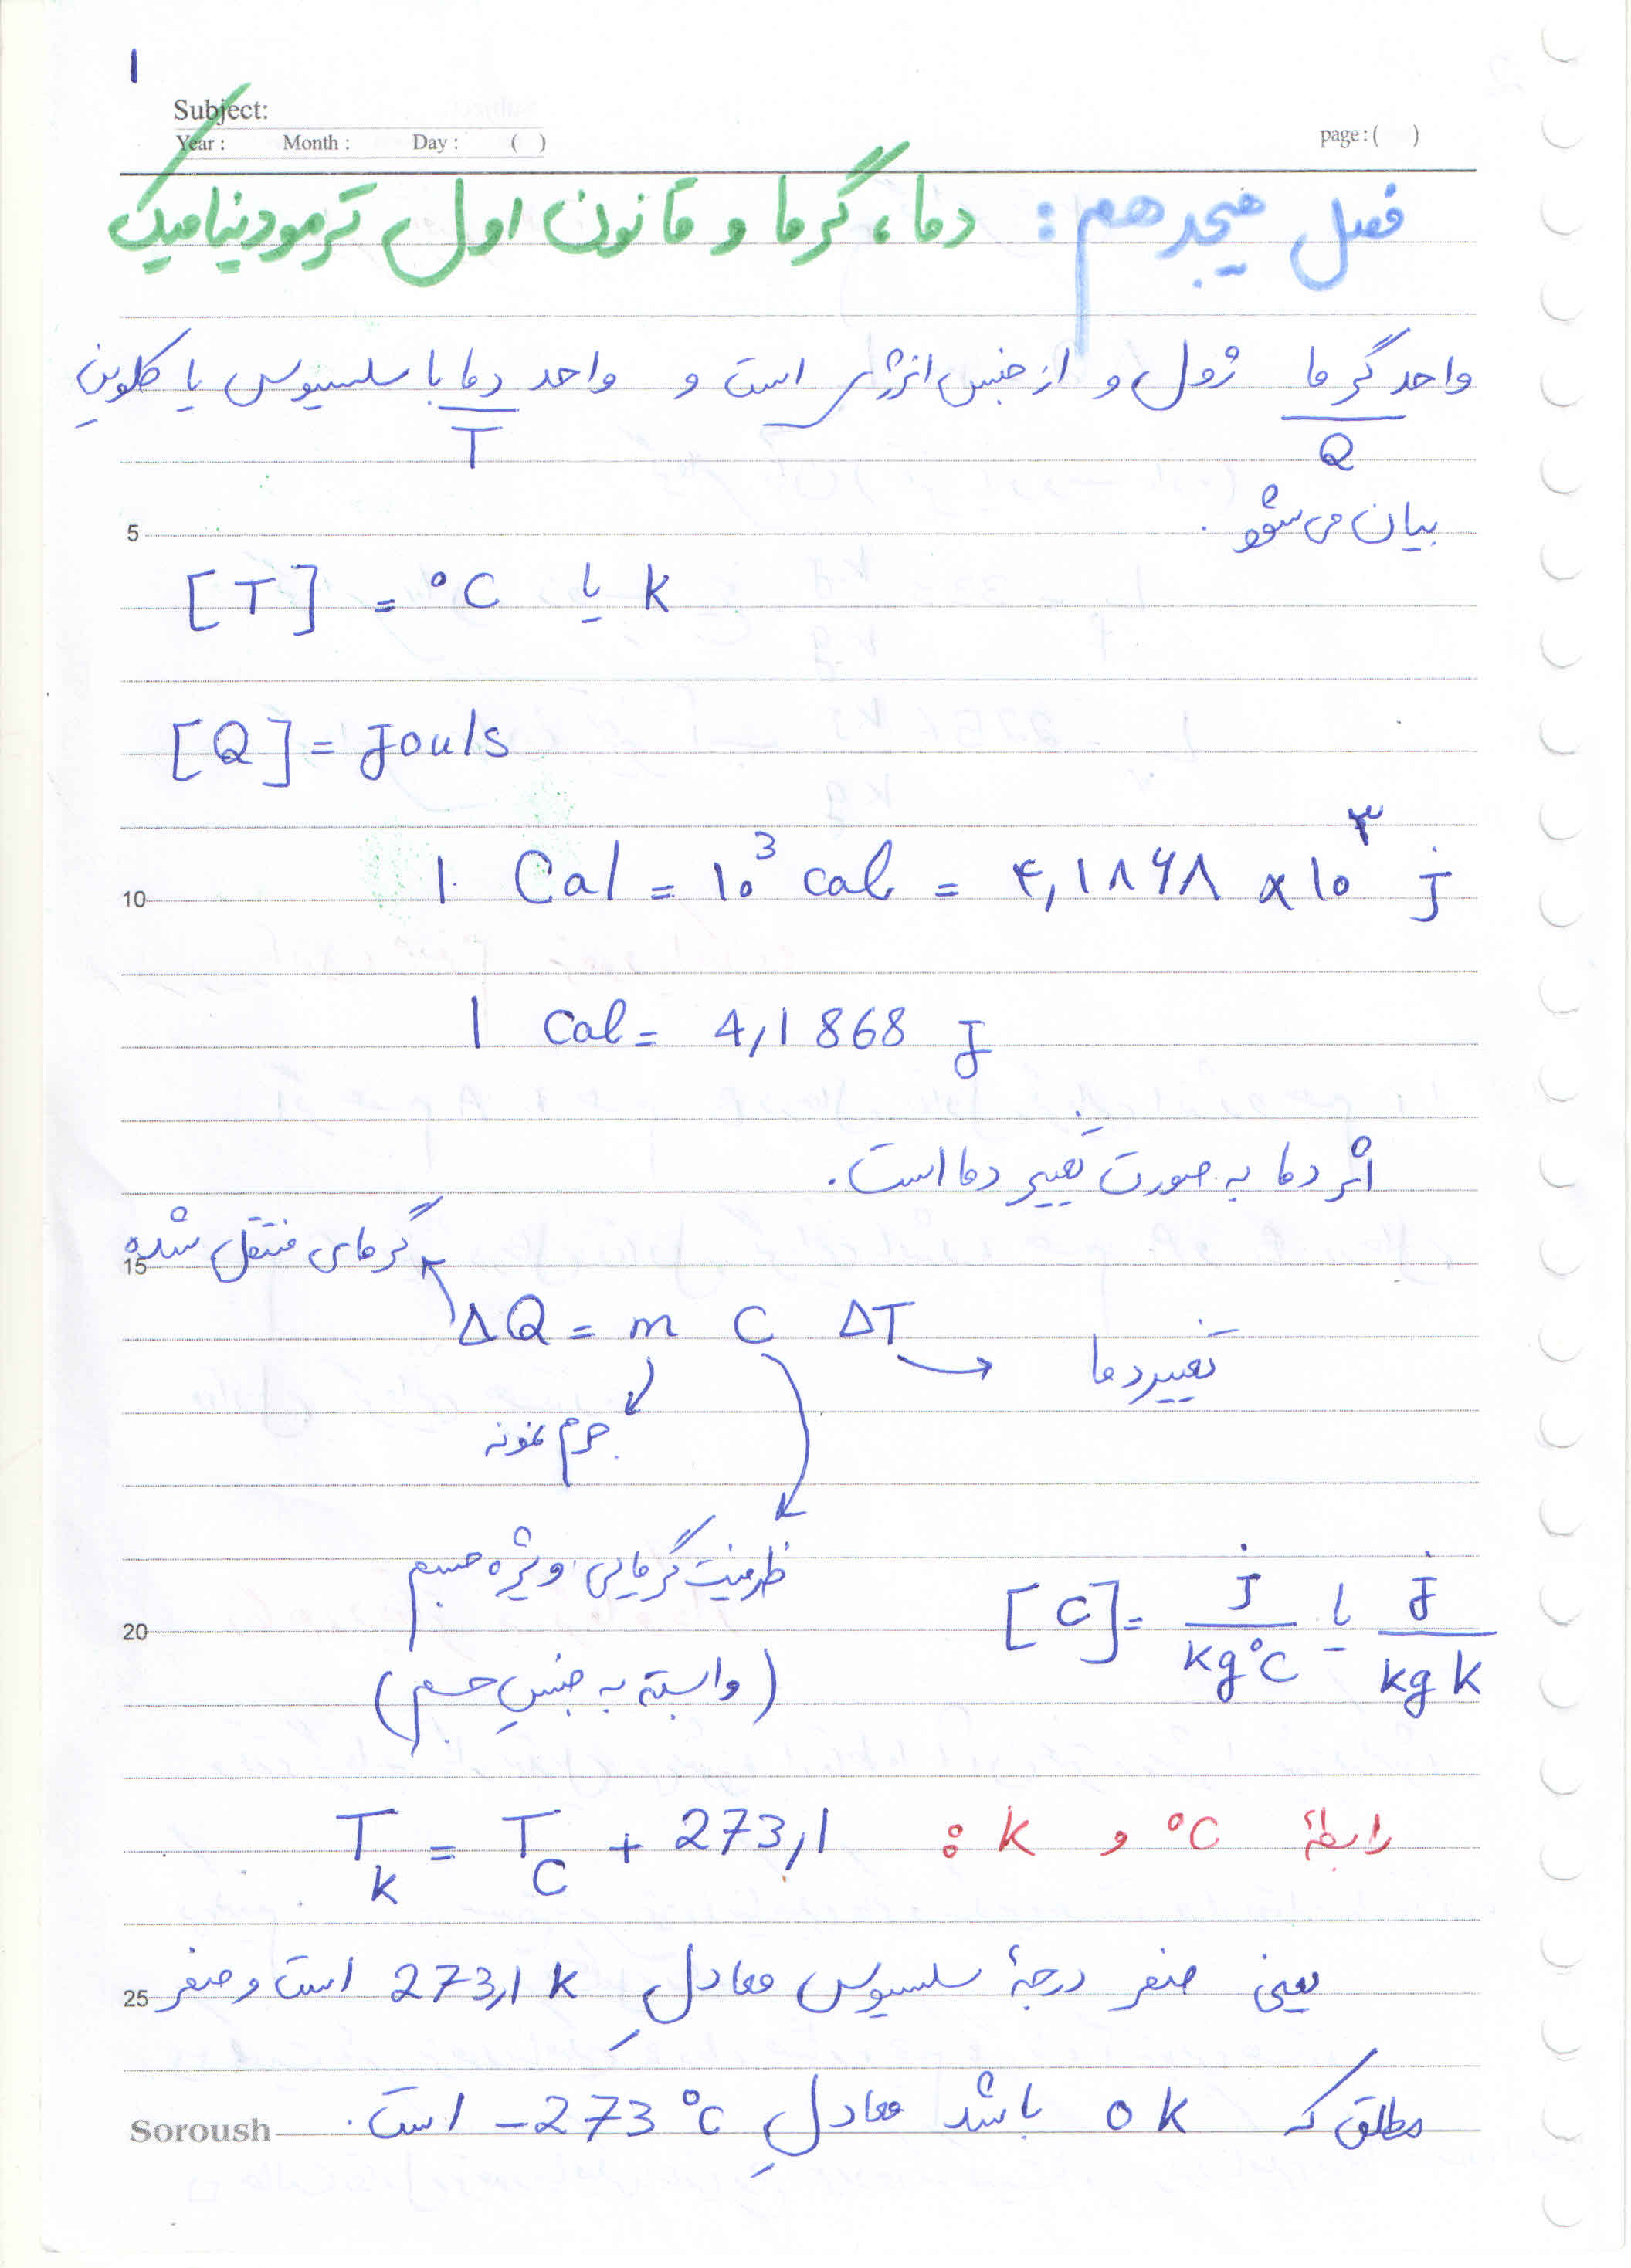 ۱
Subject:
Year : Month : Day : ( ) page : ( )
فصل هیجدهم : دما، گرما و قانون اول ترمودینامیک
واحد گرما ژول و از جنس انرژی است و واحد دما با سلسیوس یا کلوین
Q T
5 بیان می شود .
[T] = °C یا k
[Q] = Jouls
10 1 Cal = 10^3 cal = ۴,۱۸۶۸ × ۱۰^۳ j
1 cal = 4,1868 J
اثر دما به صورت تغییر دما است .
15 گرمای منتقل شده
ΔQ = m C ΔT
تغییر دما
جرم نمونه
ظرفیت گرمایی ویژه جسم
20 [C] = j/kg°C یا j/kg k
(وابسته به جنسِ جسم)
رابطهٔ °C و k : T_k = T_C + 273,1
25 یعنی صفر درجهٔ سلسیوس معادلِ 273,1 k است و صفر
مطلق که 0 k باشد معادلِ -273 °C است .
Soroush